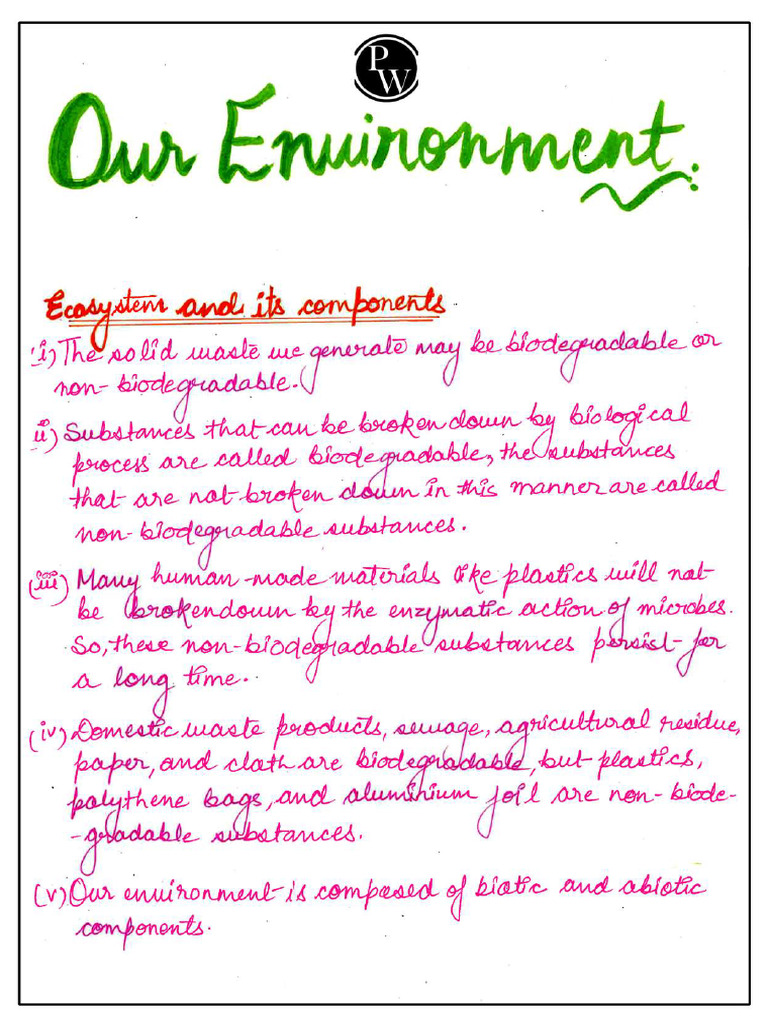 PW
Our Environment.
Ecosystem and its components
i) The solid waste we generate may be biodegradable or
non-biodegradable.
ii) Substances that can be broken down by biological
process are called biodegradable, the substances
that are not broken down in this manner are called
non-biodegradable substances.
(iii) Many human-made materials like plastics will not
be broken down by the enzymatic action of microbes.
So, these non-biodegradable substances persist for
a long time.
(iv) Domestic waste products, sewage, agricultural residue,
paper, and cloth are biodegradable, but plastics,
polythene bags, and aluminium foil are non-biode-
-gradable substances.
(v) Our environment is composed of biotic and abiotic
components.